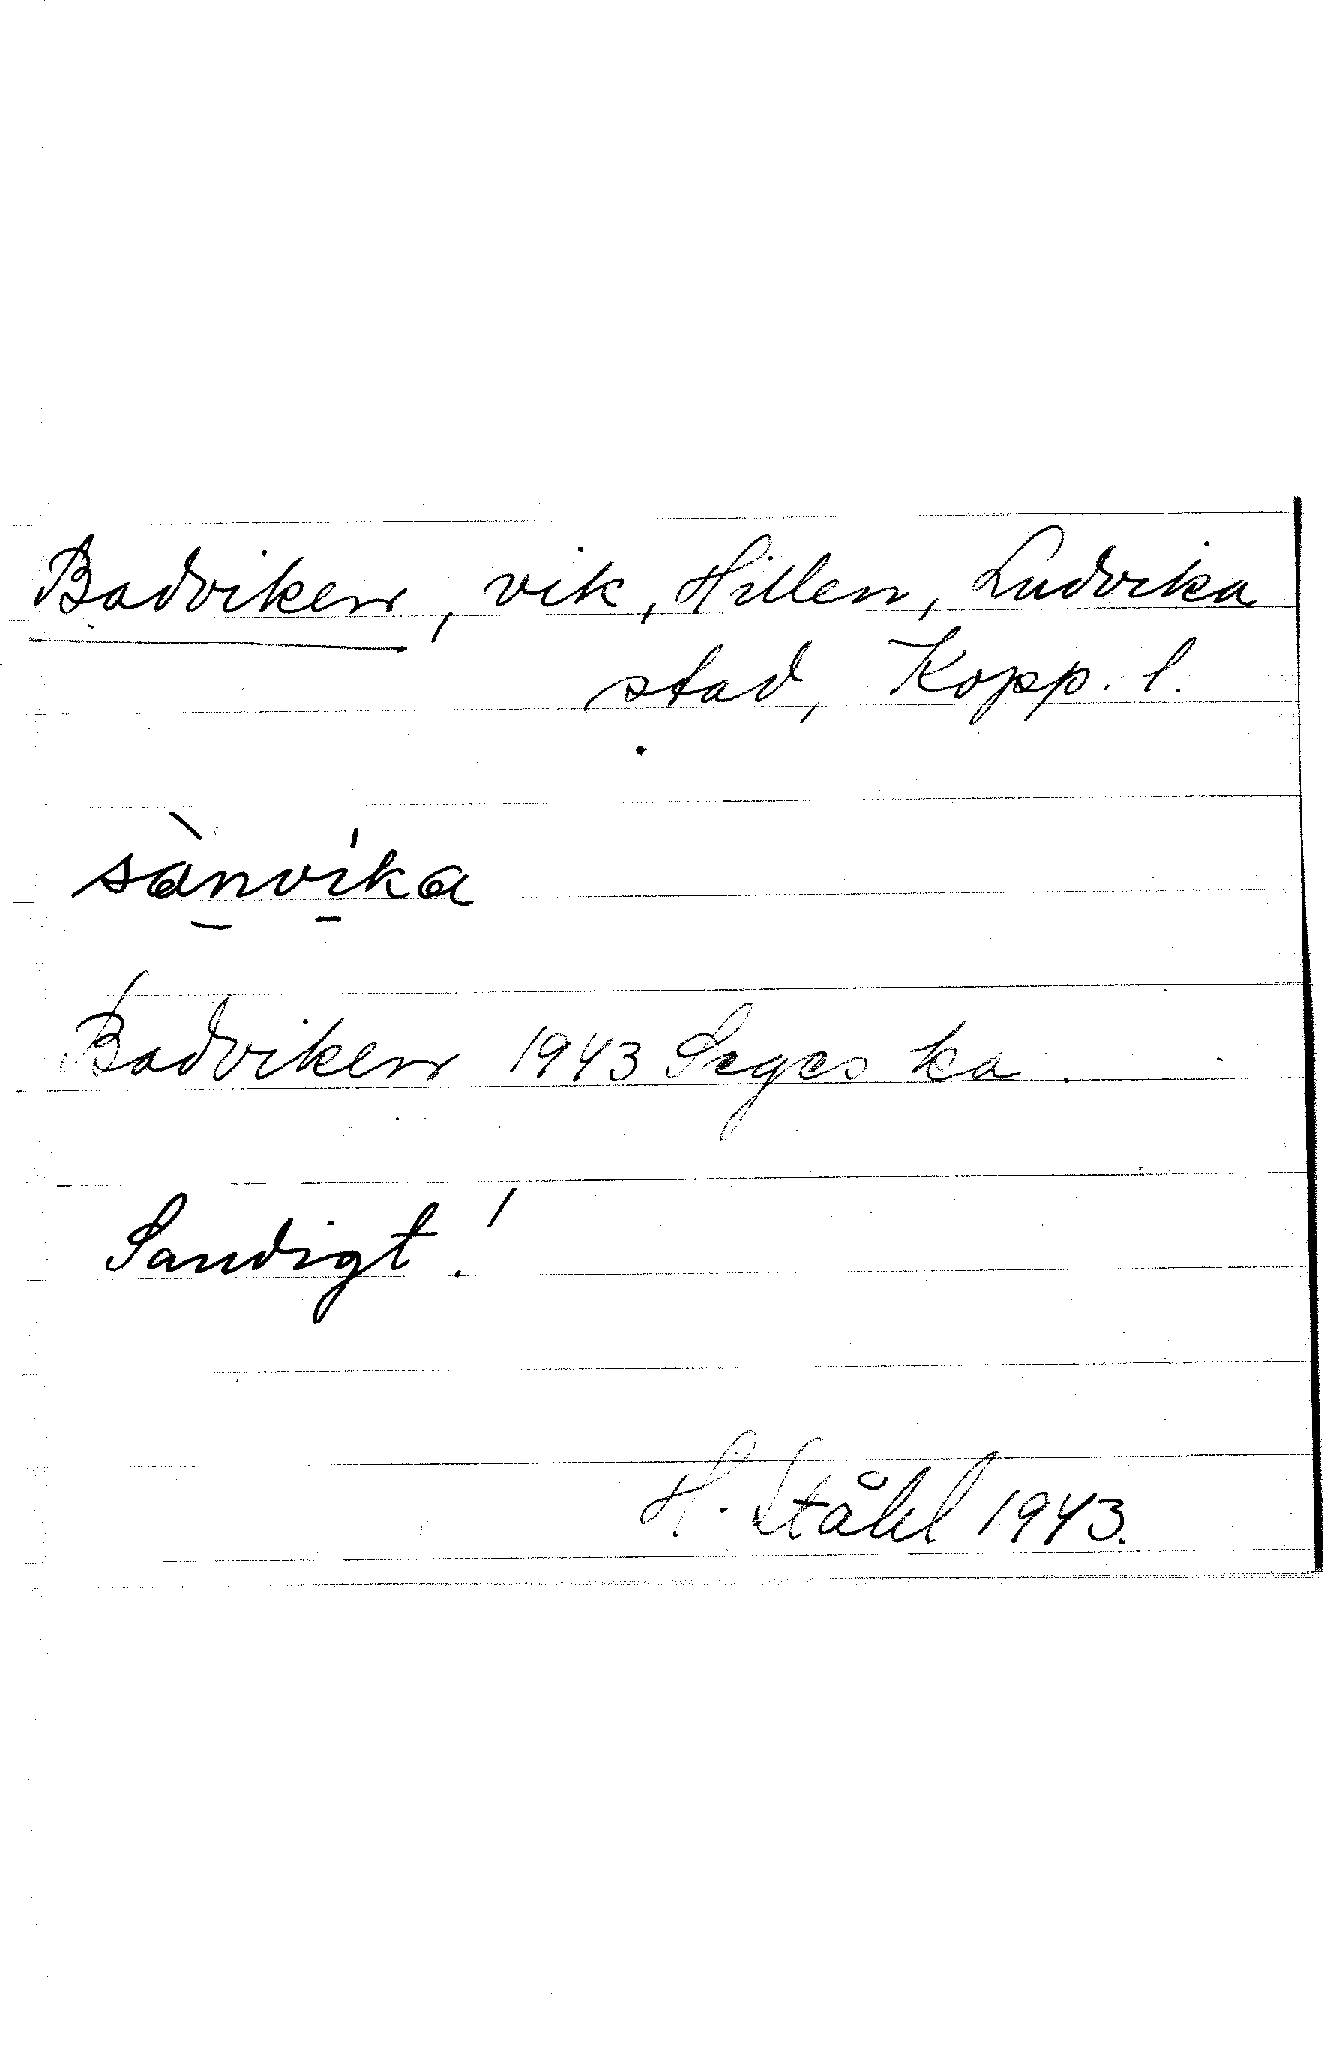 Badviken, vik, Hillen, Ludvika
stad, Kopp. l.
sànvíka
Badviken 1943 Seges ka.
Sandigt!
H. Ståhl 1943.